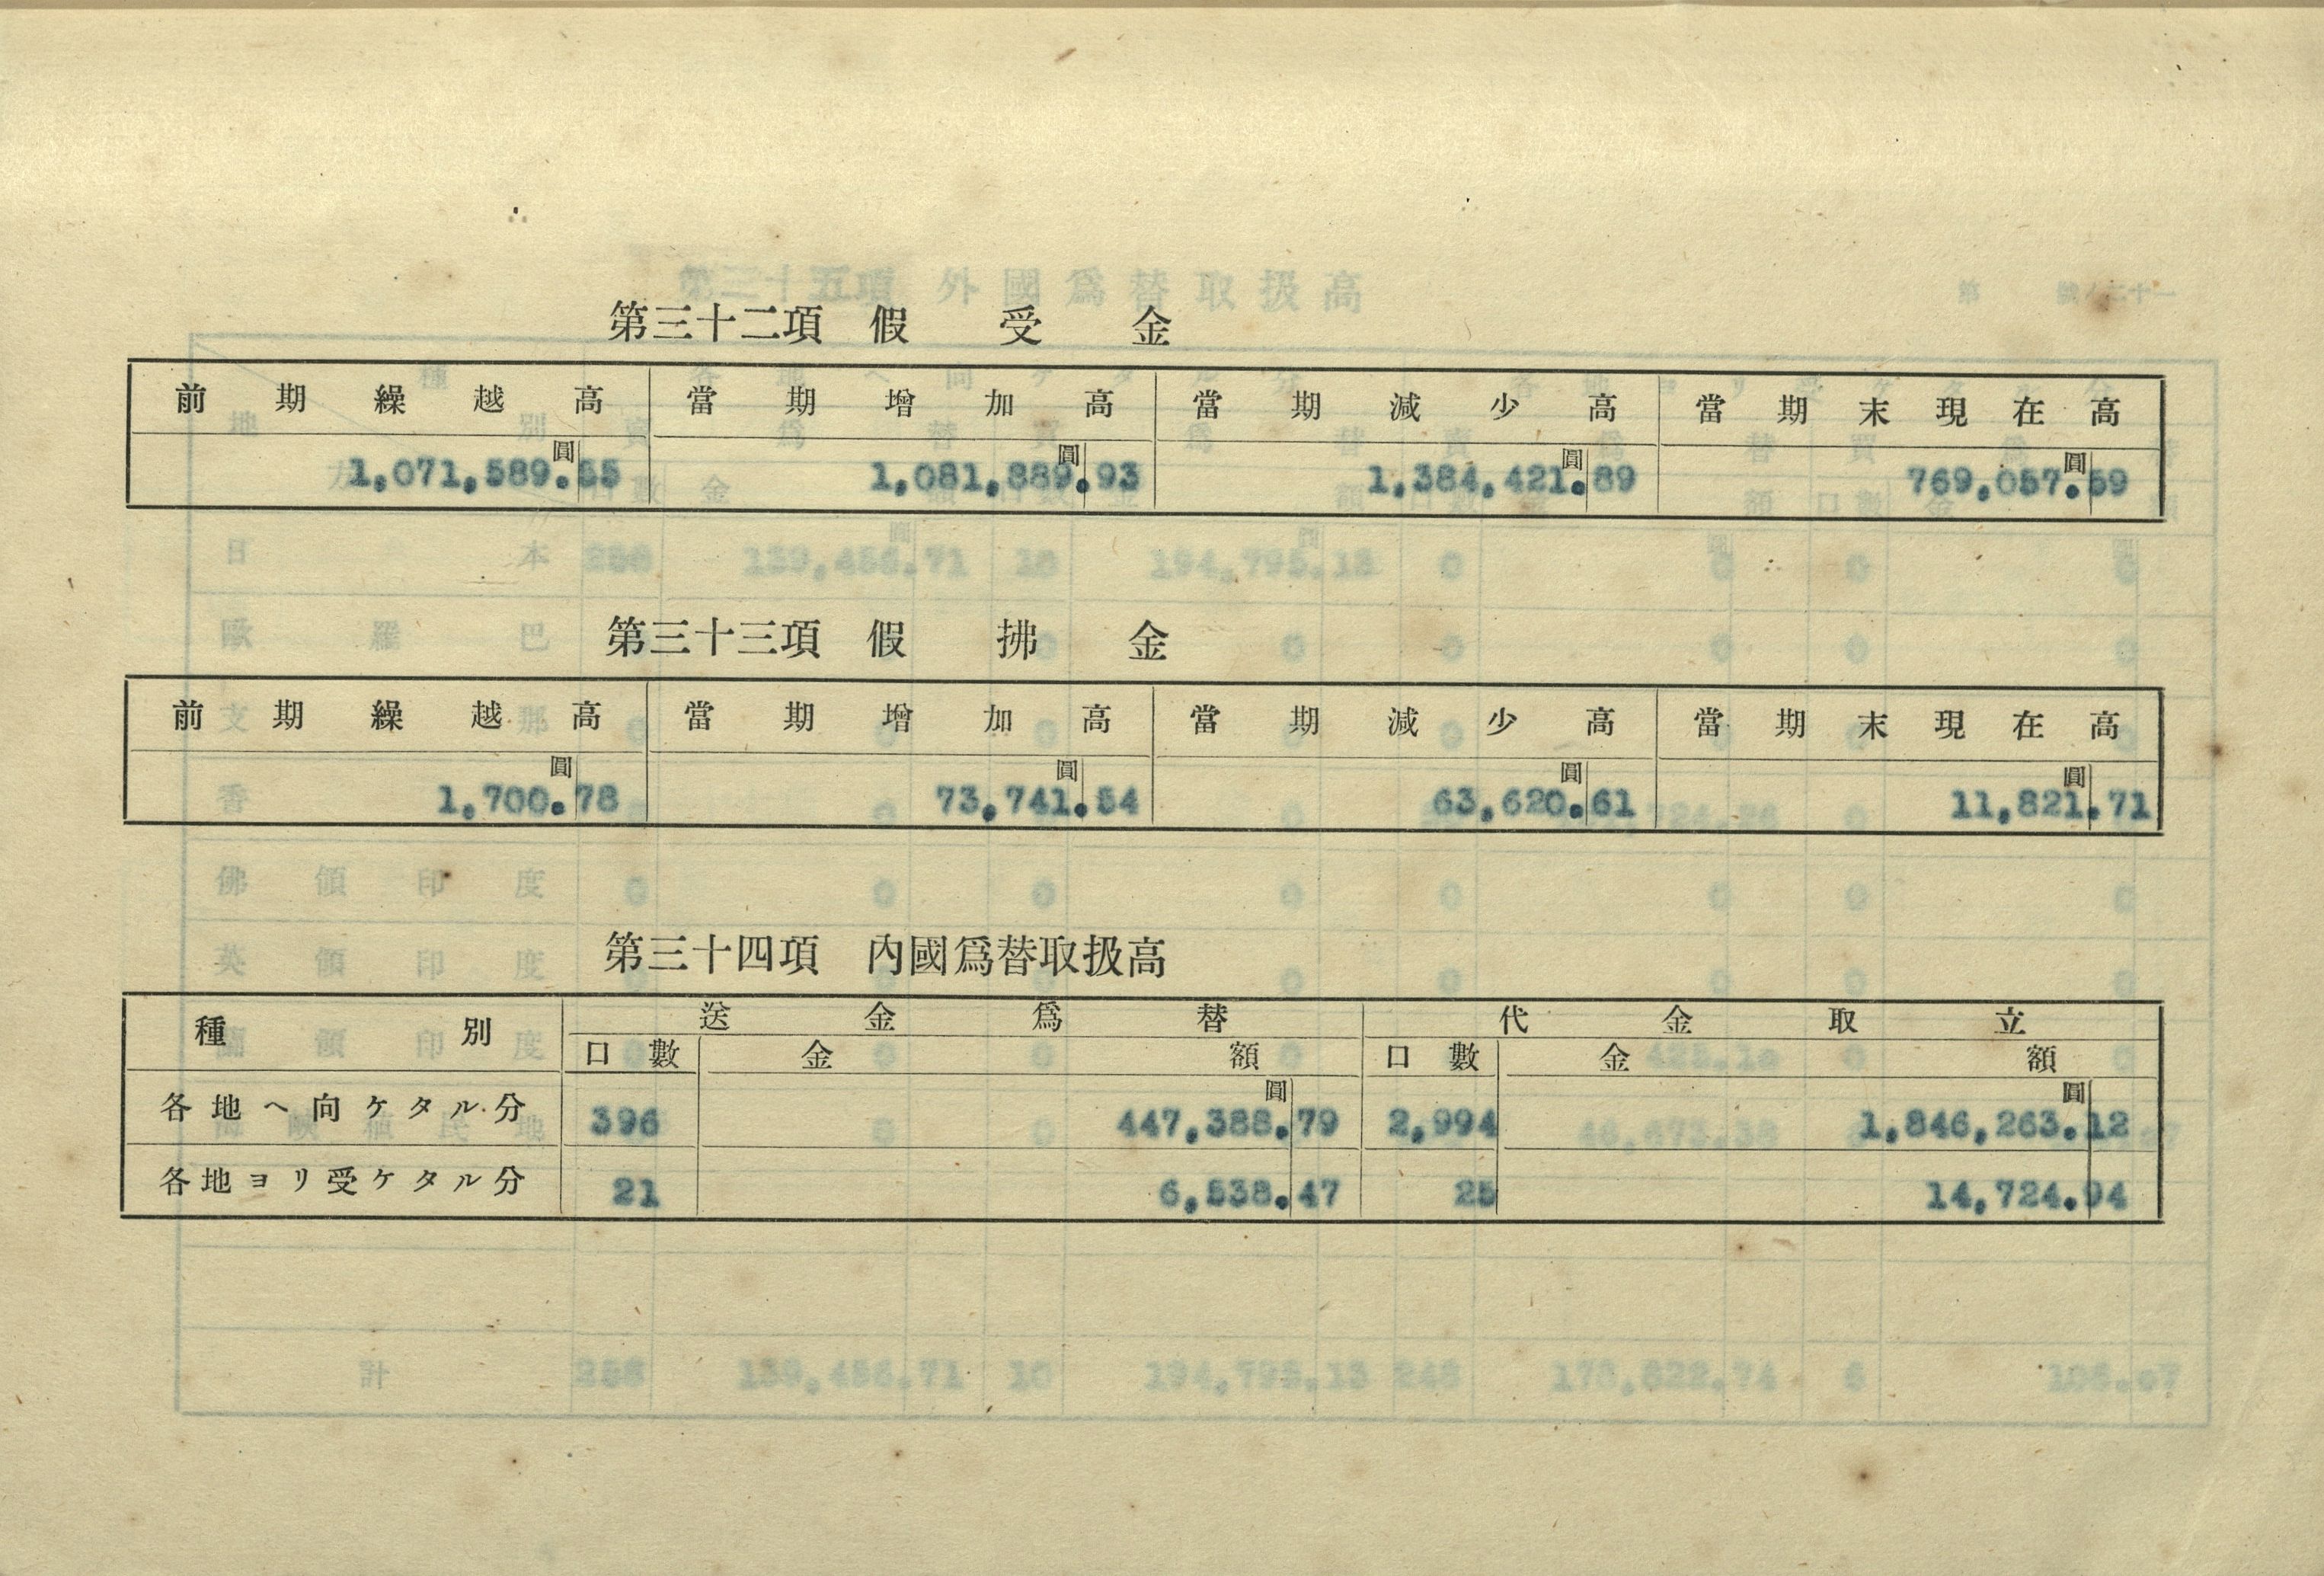 第三十二項 假受金
前期繰越高 當期增加高 當期減少高 當期末現在高
圓 圓 圓 圓
1,071,589.55 1,081,889.93 1,384,421.89 769,057.59
第三十三項 假拂金
前期繰越高 當期增加高 當期減少高 當期末現在高
圓 圓 圓 圓
1,700.78 73,741.54 63,620.61 11,821.71
第三十四項 內國爲替取扱高
種別 送金爲替 代金取立
口數 金額 口數 金額
圓 圓
各地ヘ向ケタル分 396 447,388.79 2,994 1,846,263.12
各地ヨリ受ケタル分 21 6,538.47 25 14,724.94